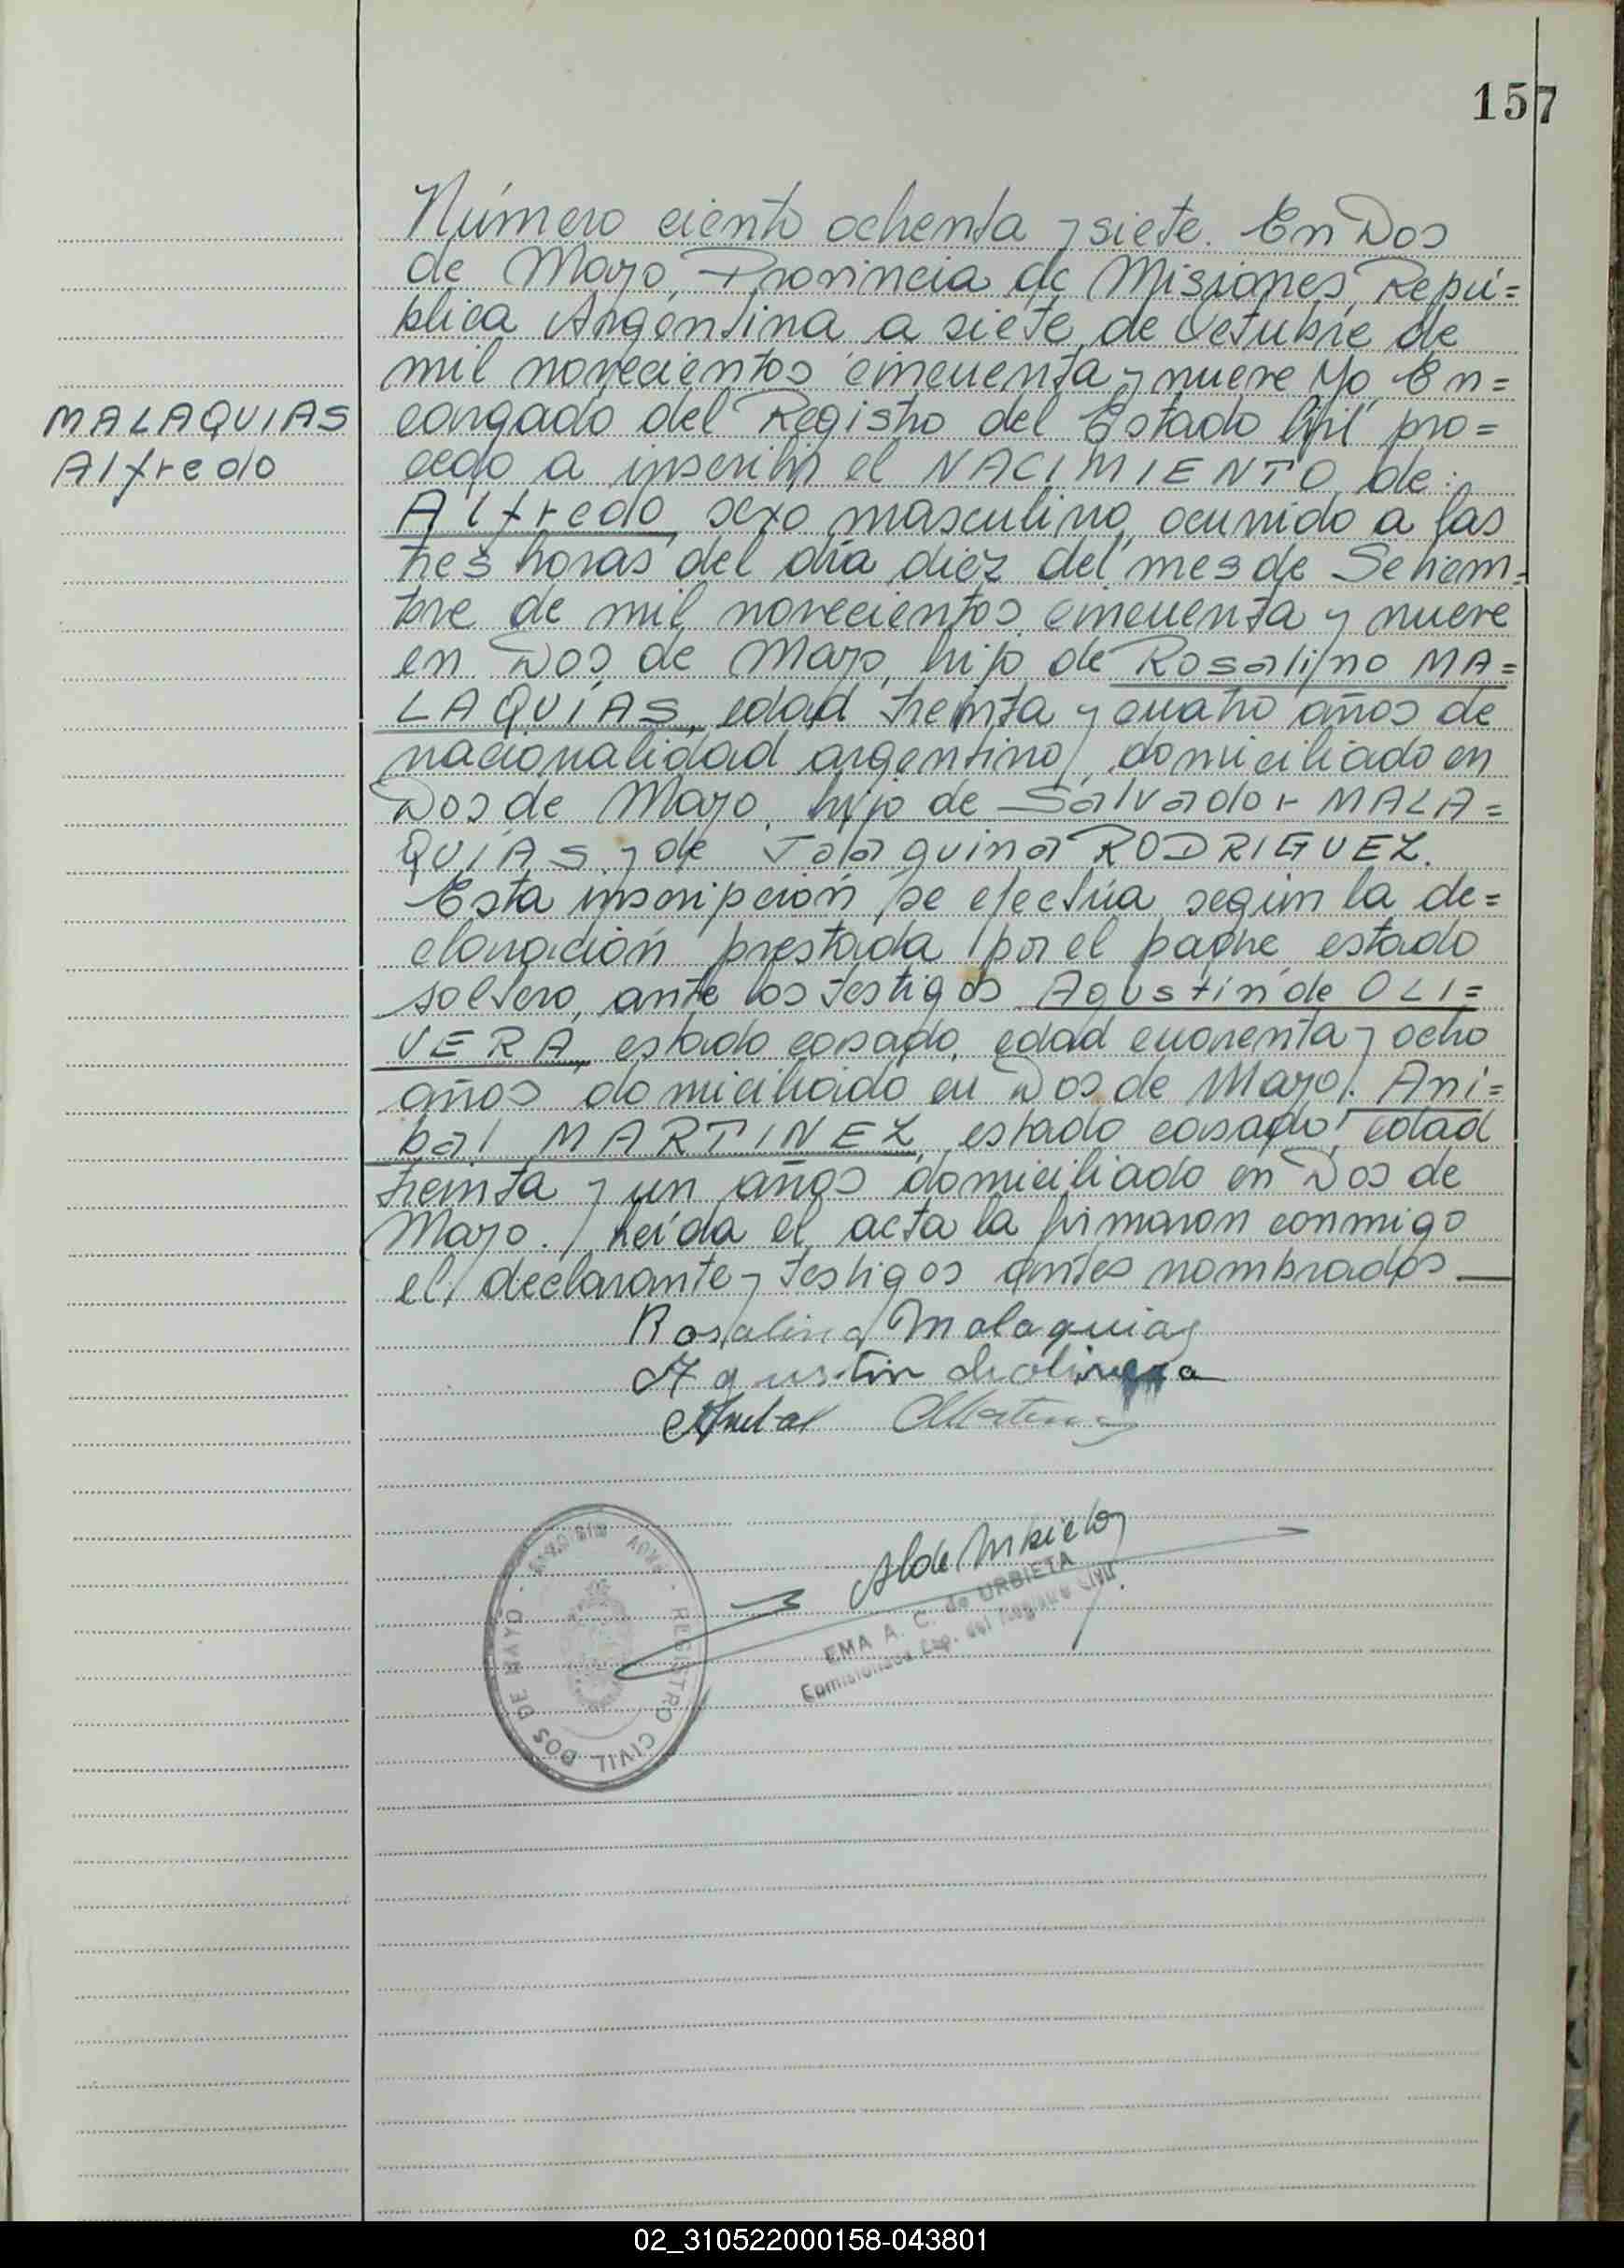 157
Número ciento ochenta y siete. En Dos
de Mayo, Provincia de Misiones, Repú=
blica Argentina a siete de Octubre de
mil novecientos cincuenta y nueve Yo, En=
MALAQUIAS
cargado del Registro del Estado Civil pro=
Alfredo
cedo a inscribir el NACIMIENTO de:
Alfredo, sexo masculino, ocurrido a las
tres horas del día diez del mes de Setiem=
bre de mil novecientos cincuenta y nueve
en Dos de Mayo, hijo de Rosalino MA=
LAQUIAS, edad treinta y cuatro años de
nacionalidad argentino, domiciliado en
Dos de Mayo, hijo de Salvador MALA=
QUIAS y de Joaquina RODRIGUEZ.
Esta inscripción se efectúa según la de=
claración prestada por el padre, estado
soltero, ante los testigos Agustín de OLI=
VERA, estado casado, edad cuarenta y ocho
años, domiciliado en Dos de Mayo. Aní=
bal MARTINEZ, estado casado, edad
treinta y un años domiciliado en Dos de
Mayo. Leída el acta la firmaron conmigo
el declarante y testigos antes nombrados
Rosalino Malaquias
Agustin deolivera
Anibal Martinez
EMA A. C. de URBIETA
del Registro Civil
DOS DE MAYO - REGISTRO CIVIL
02_310522000158-043801